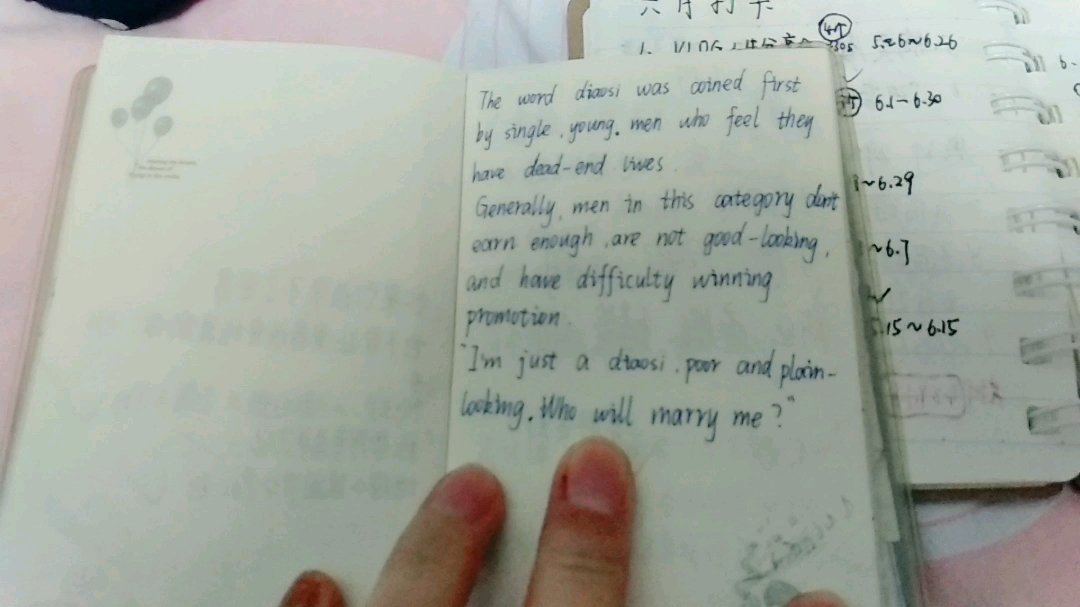 The word diaosi was coined first
by single, young. men who feel they
have dead-end lives.
Generally, men in this category don't
earn enough, are not good-looking,
and have difficulty winning
promotion.
"I'm just a diaosi, poor and plain-
looking. Who will marry me?"
六月打卡
5.26~6.26
6.1-6.30
~6.29
~6.7
5.15~6.15